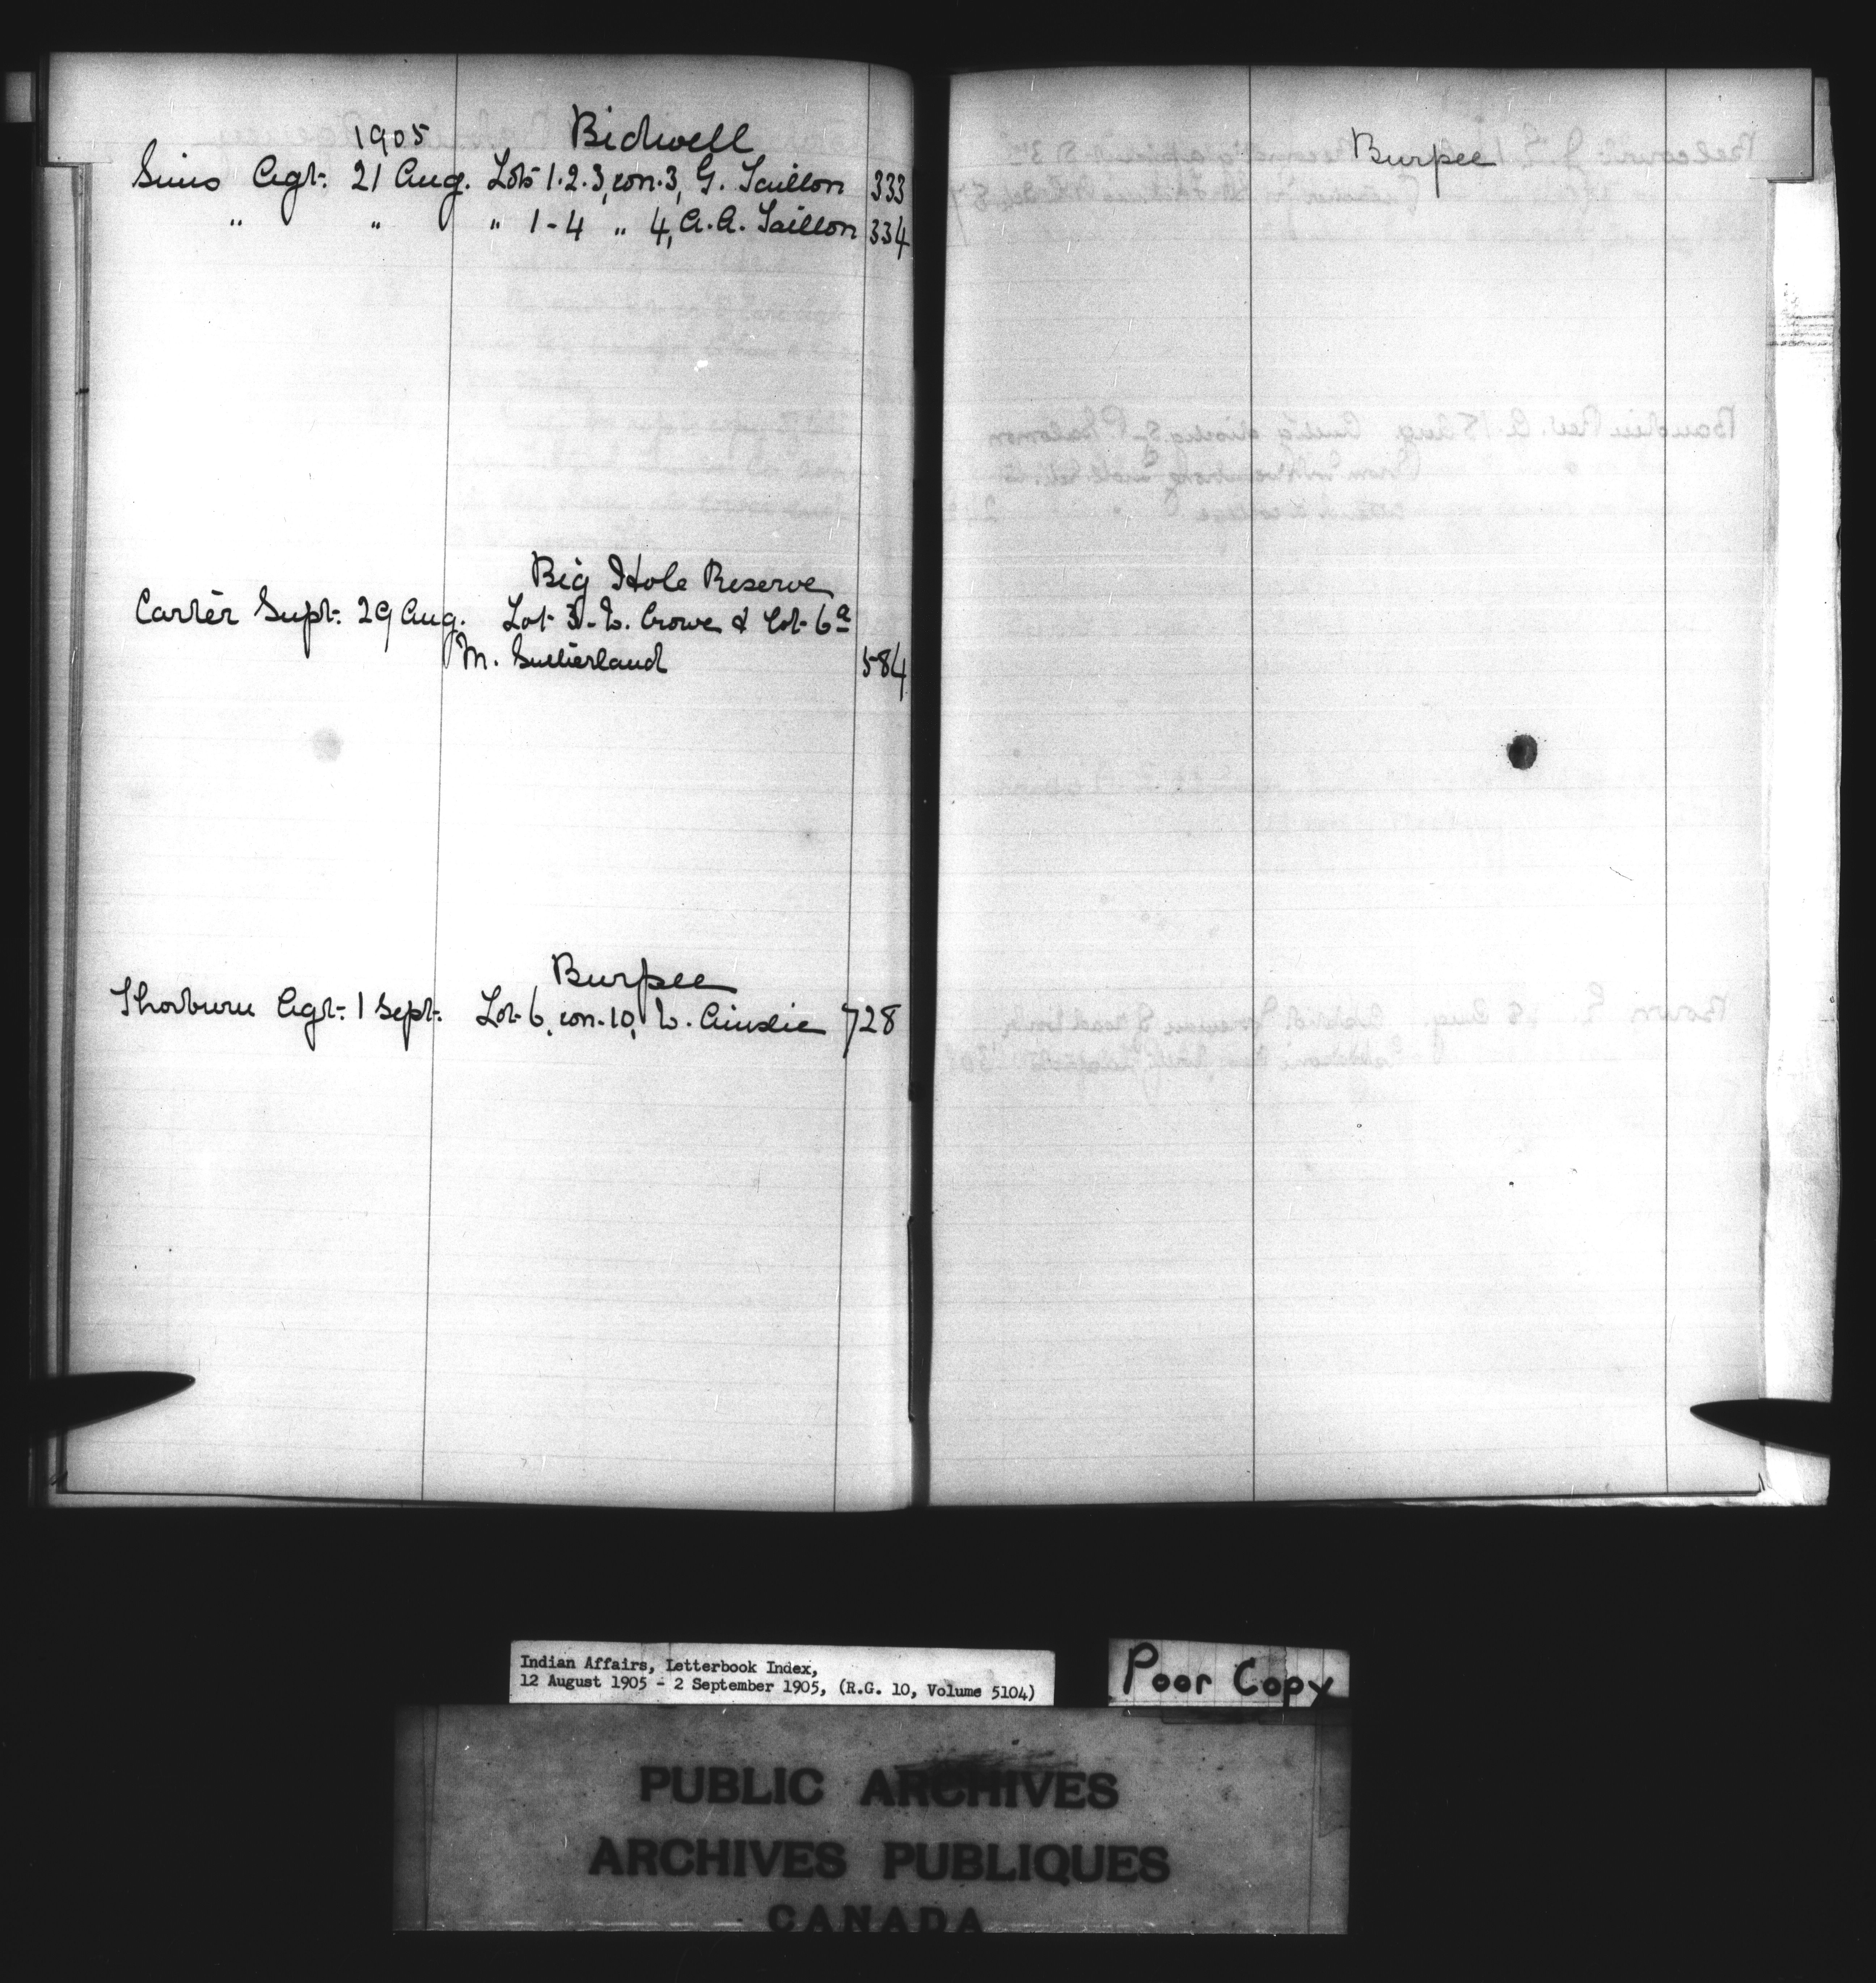 1905 Bidwell
Sims Agt. 21 Aug. Lots 1.2.3, con. 3, G. Taillon 333
" " " 1-4 " 4, A.A. Taillon 334
Big Hole Reserve
Carter Supt. 29 Aug. Lot 3 - W. Crowe & Lot 6a
M. Sutherland 584
Burpee
Thorburn Agt. 1 Sept. Lot 6, con. 10, W. Ainslie 728
Burpee
Indian Affairs, Letterbook Index,
12 August 1905 - 2 September 1905, (R.G. 10, Volume 5104)
Poor Copy
PUBLIC ARCHIVES
ARCHIVES PUBLIQUES
CANADA